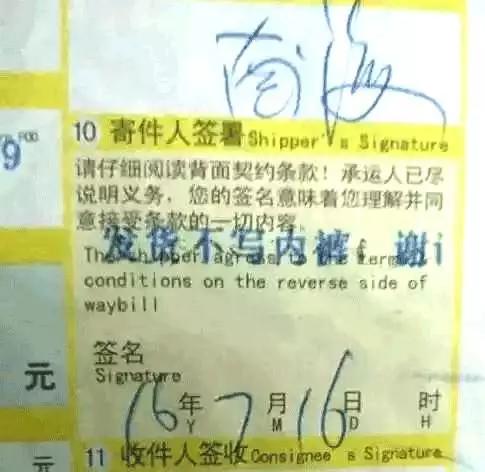 南海
POD
9
10 寄件人签署 Shipper's Signature
请仔细阅读背面契约条款！承运人已尽
说明义务，您的签名意味着您理解并同
意接受条款的一切内容。
发货不写内裤，谢
The shipper agrees to the terms
conditions on the reverse side of
waybill
签名
Signature
元
16年7月16日 时
Y M D H
11 收件人签收 Consignee's Signature
元